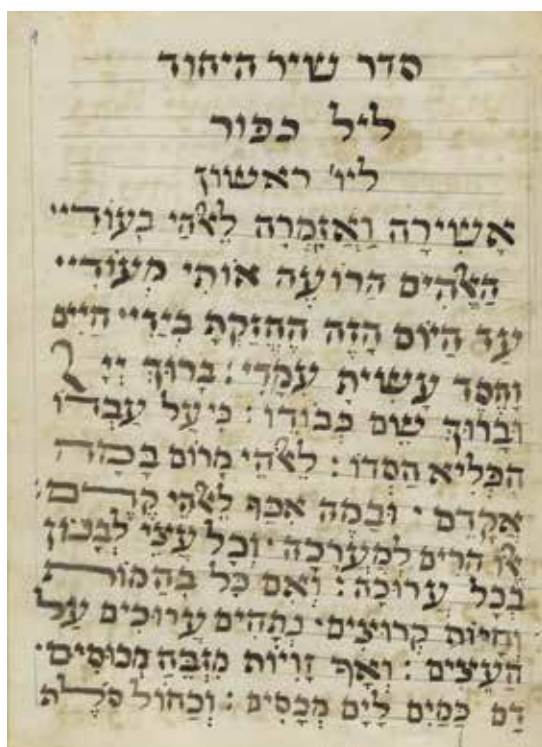 סדר שיר היחוד
ליל כפור
ליו׳ ראשון
אָשִׁירָה וַאֲזַמְּרָה לֵאלֹהַי בְּעוֹדִיי
הָאֱלֹהִים הָרוֹעֶה אוֹתִי מְעוֹדִיי
עַד הַיּוֹם הַזֶּה הֶחֱזַקְתָּ בְּיָדִיי חַיִּים
וָחֶסֶד עָשִׂיתָ עִמָּדִי : בָּרוּךְ יְיָ
וּבָרוּךְ שֵׁם כְּבוֹדוֹ : כִּי עַל עַבְדּוֹ
הִפְלִיא חַסְדוֹ : לֵאלֹהַי מָרוֹם בַּמָּה
אֲקַדֵּם · וּבַמֶּה אִכַּף לֵאלֹהֵי קֶדֶם :
אלו הָרִים לְמַעֲרָכָה · וְכָל עֲצֵי לְבָנוֹן
בְּכָל עֲרוּכָה : וְאִם כָּל בְּהֵמוֹת
וְחַיּוֹת קְרוּצִים · נְתָחִים עֲרוּכִים עַל
הָעֵצִים : וְאַף זָוִיּוֹת מִזְבֵּחַ מְכוּסִים ·
דָּם כַּמַּיִם לַיָּם מְכַסִּים : וְכַחוֹל סֹלֶת